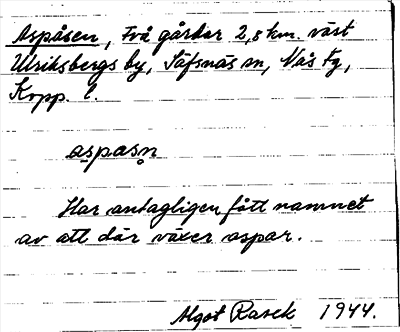 Aspåsen, två gårdar 2,8 km. väst
Ulriksbergs by, Säfsnäs sn, Nås Fg,
Kopp. l.
aspåsn̥
Har antagligen fått namnet
av att där växer aspar.
Algot Rasck 1944.